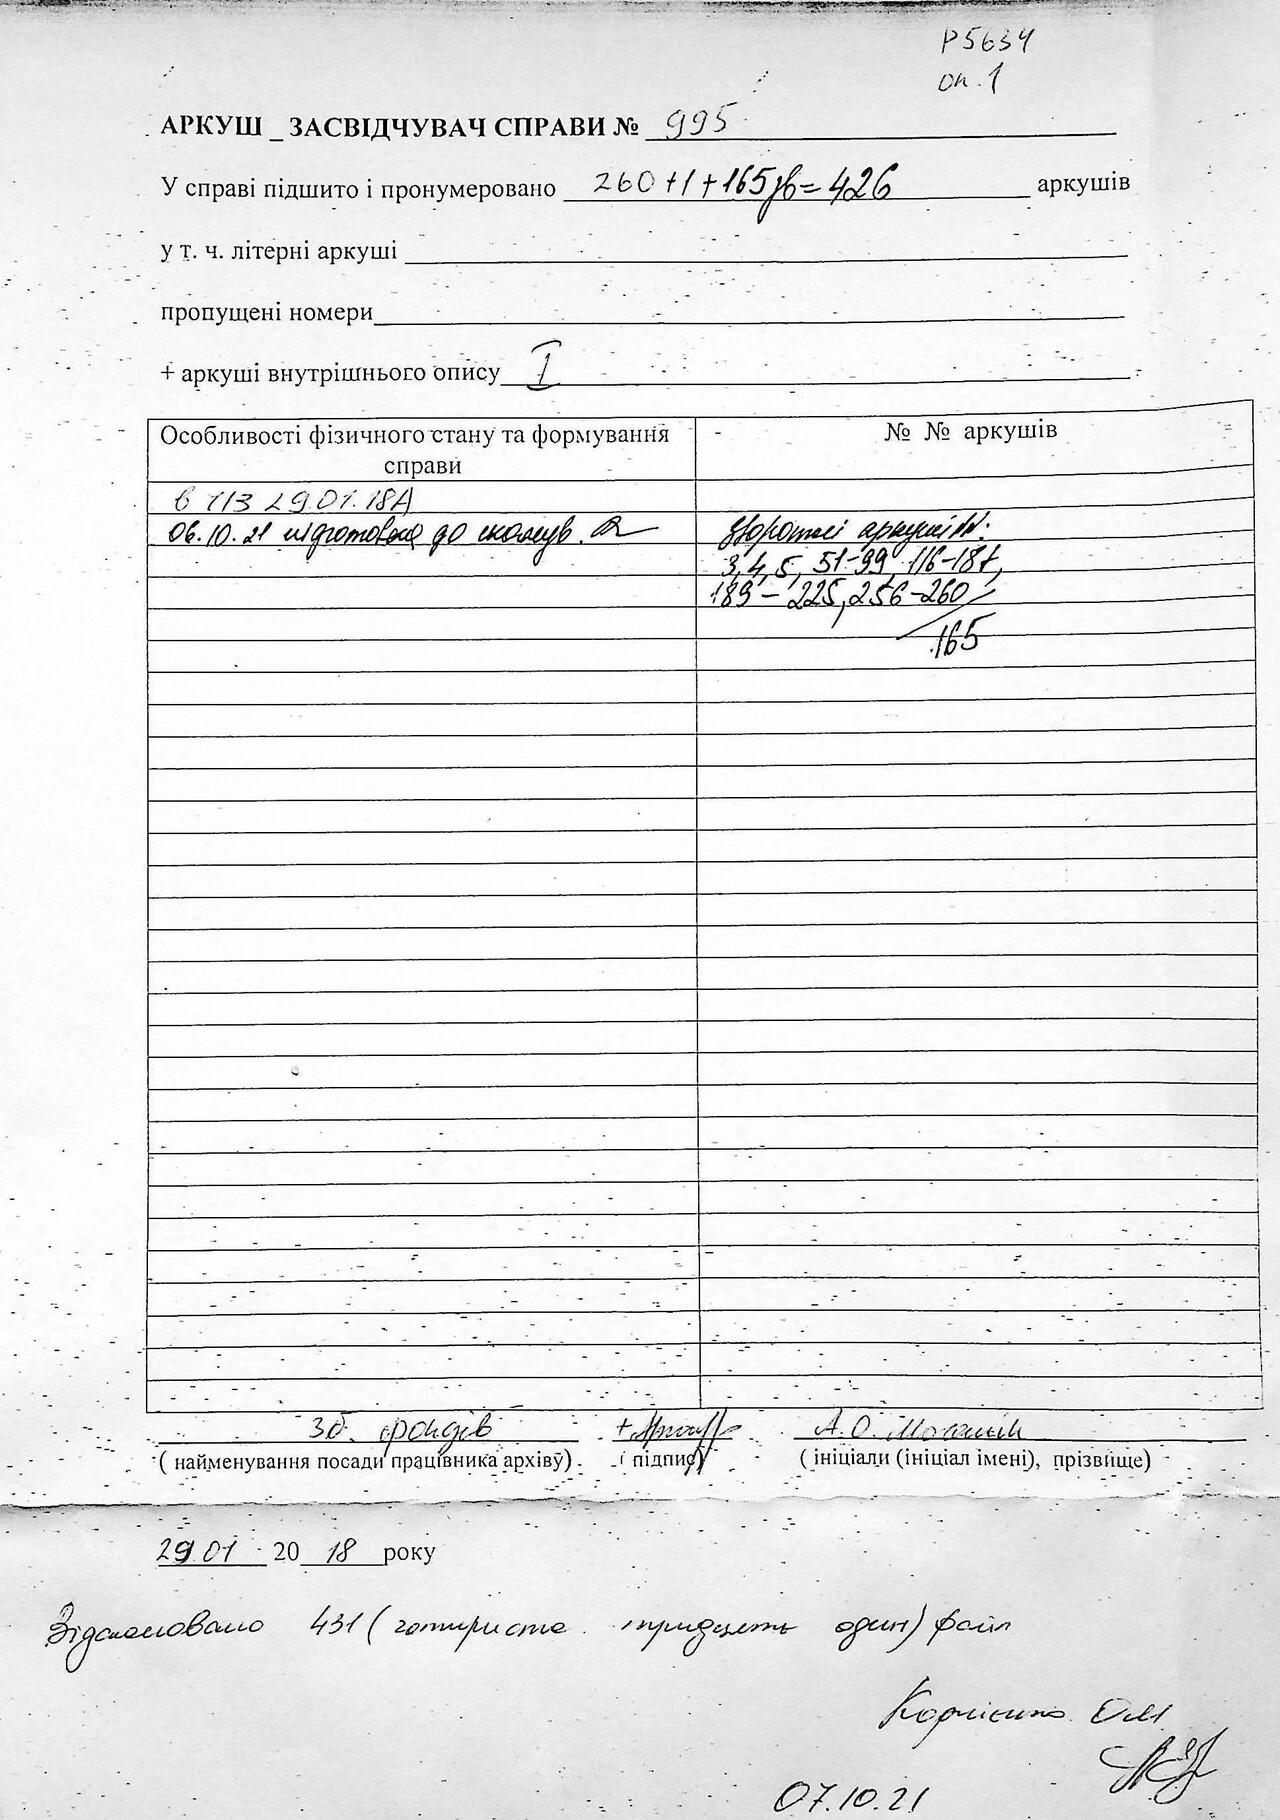 Р5634
оп. 1
АРКУШ _ ЗАСВІДЧУВАЧ СПРАВИ № 995
У справі підшито і пронумеровано 260+1+165зв=426 аркушів
у т. ч. літерні аркуші
пропущені номери
+ аркуші внутрішнього опису I
Особливості фізичного стану та формування справи
№ № аркушів
29.01.18
06.10.21 підготовлена до сканув.
Зворотні аркуші №:
3, 4, 5, 51-99, 116-187,
189 - 225, 256-260
165
Зб. фондів
А. О.
( найменування посади працівника архіву)
( підпис)
( ініціали (ініціал імені), прізвище)
29.01 20 18 року
Відскановано 431 (чотириста тридцять один) файл
Корнієнко О.М
07.10.21